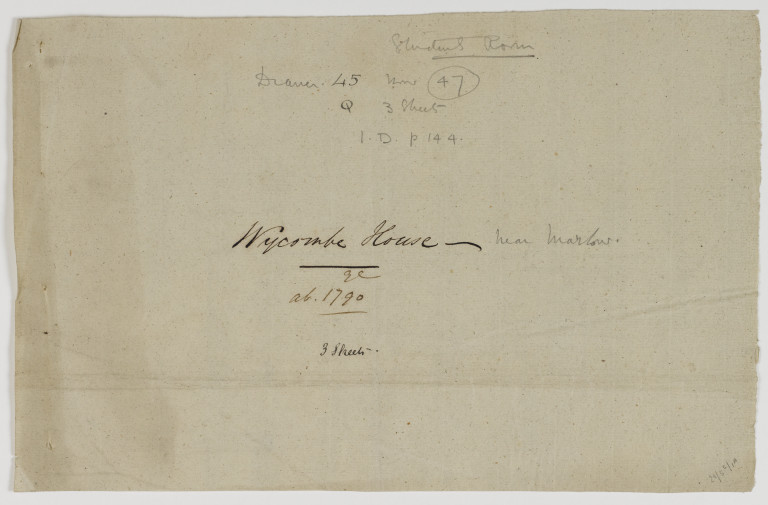 Students Room
Drawer 45 Now 47
Q 3 Sheets
I. D. p 144.
Wycombe House — near Marlow.
ab. 1790
3 Sheets.